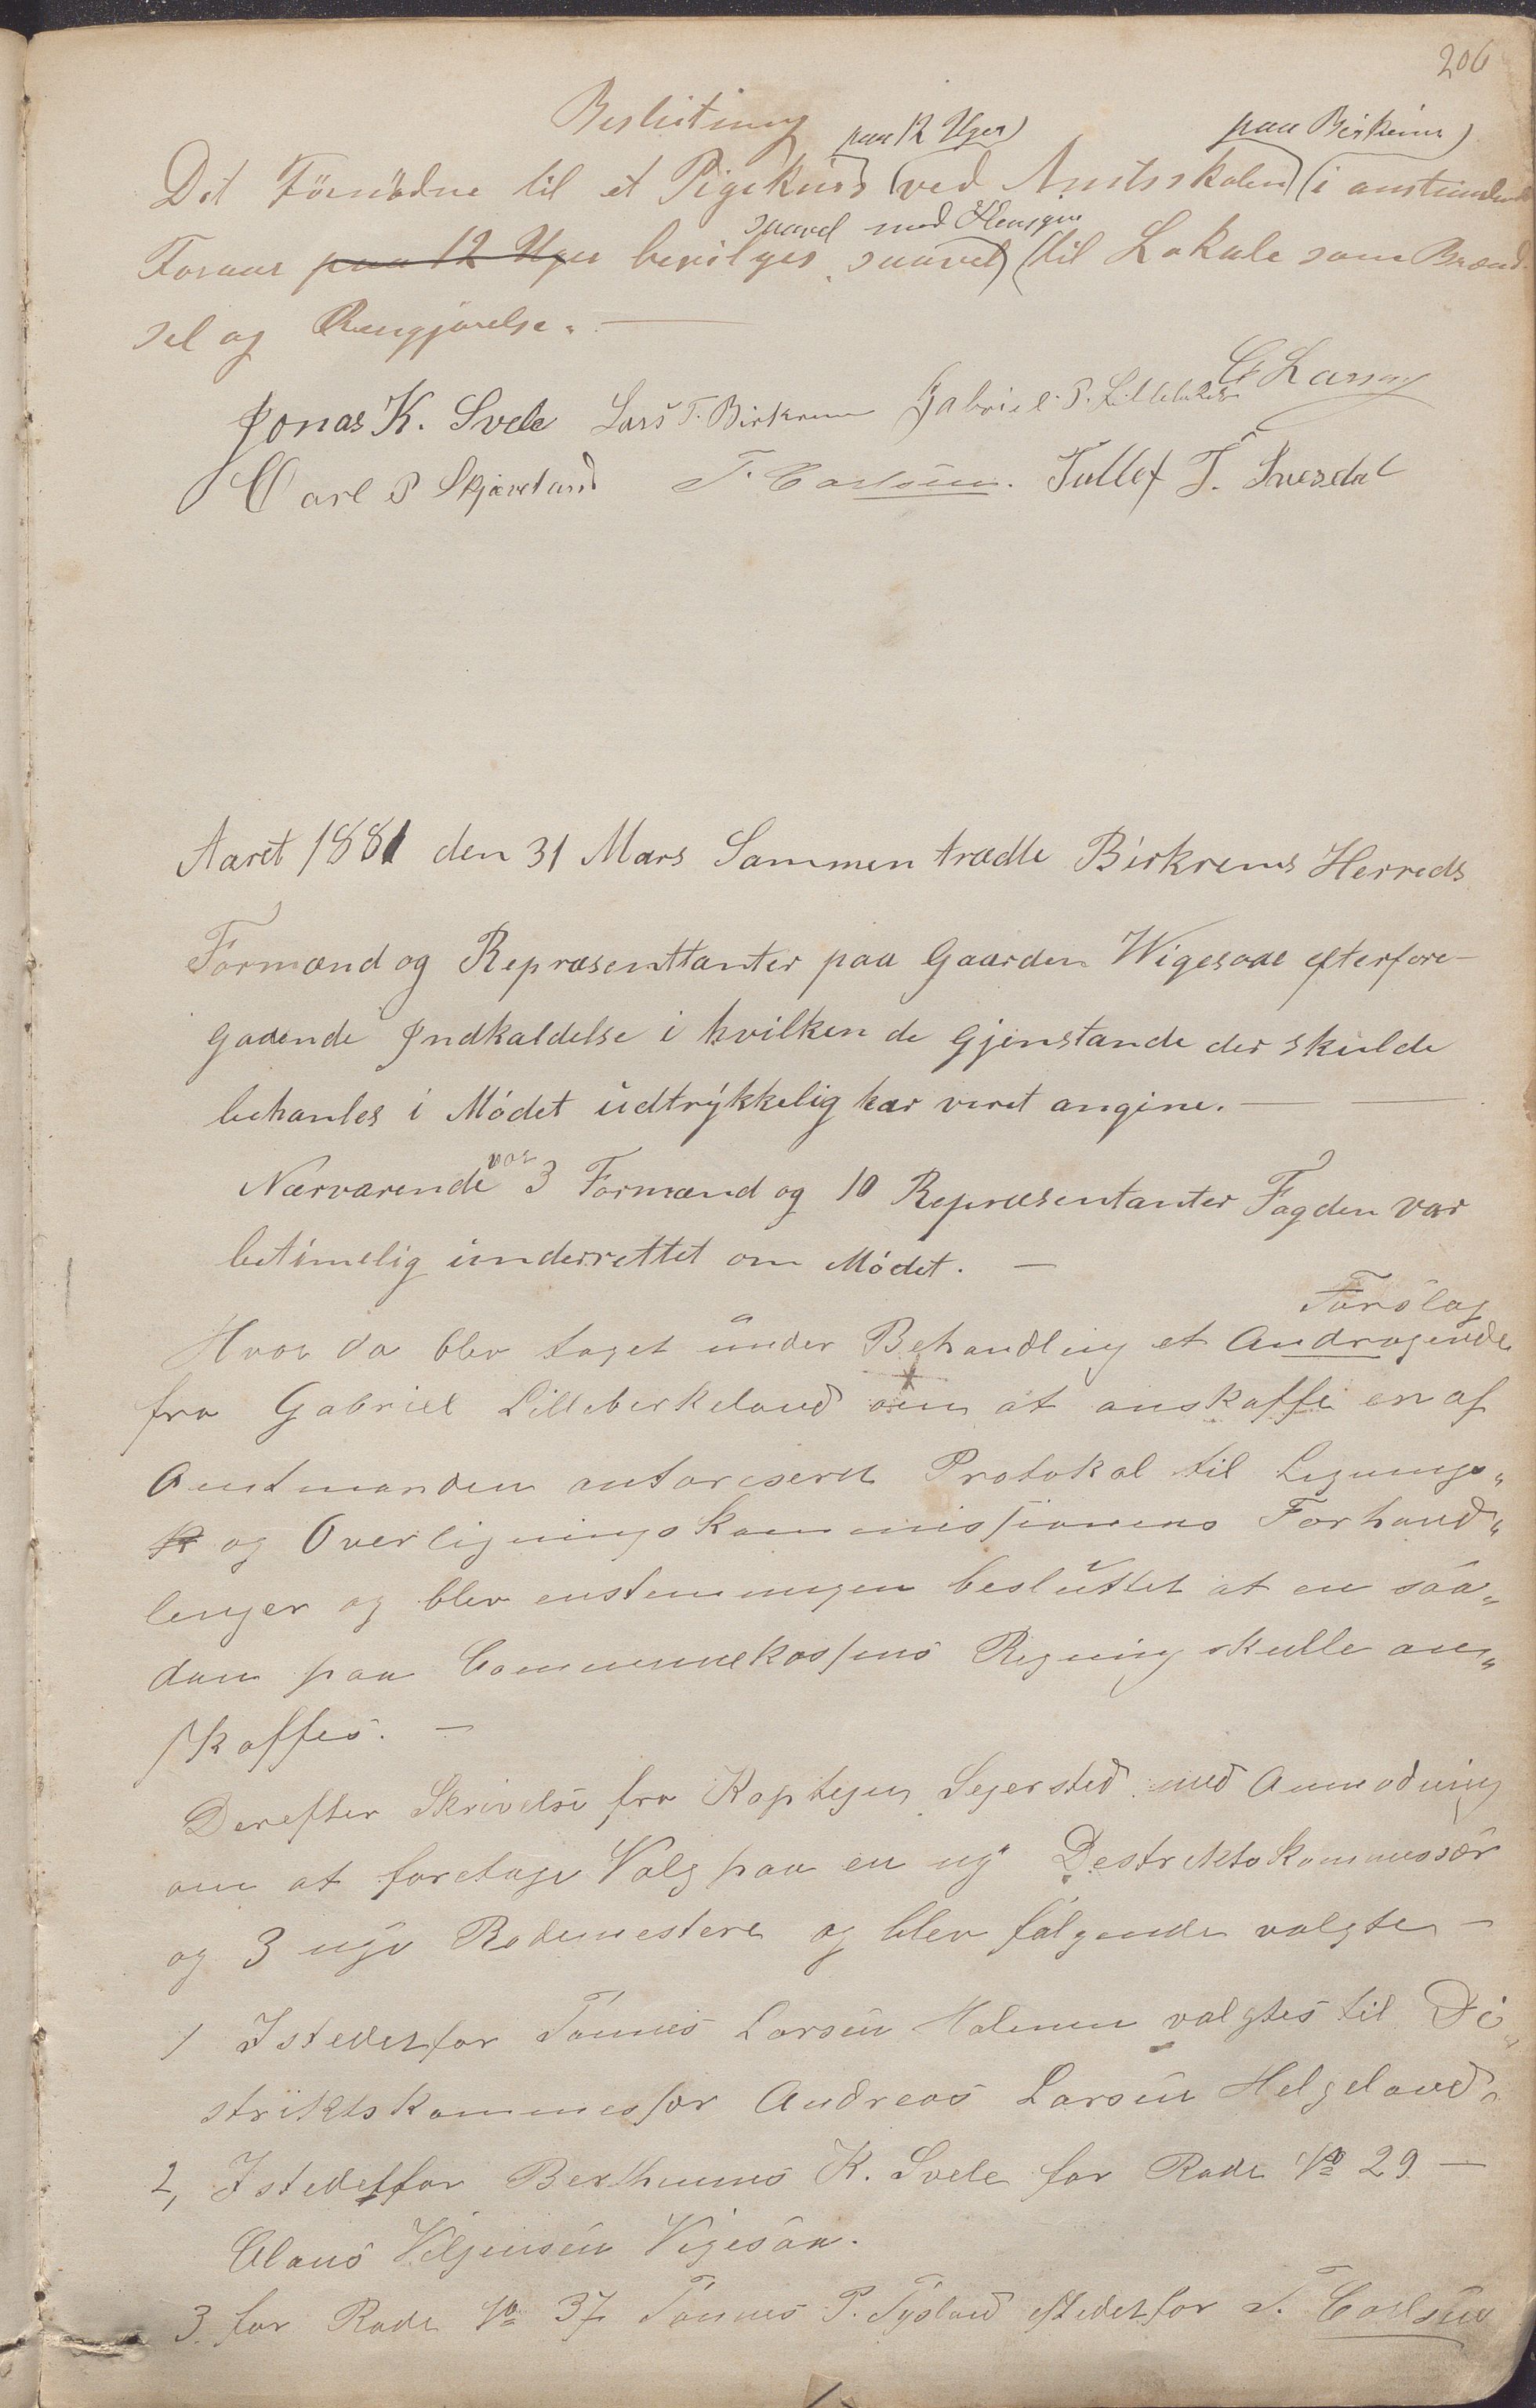 206
Beslutning
paa 12 Uger) paa Birkrim)
Det Fornødne til et Pigekurs (ved Amtsskolen) (i anstundende
saavel med Hensyn
Foraar paa 12 Uger bevilges saavel) (til Lokale som Brænd-
sel og Rengjørelse. —
Jonas K. Svele Lars T. Birkrem Gabriel P. Lillebirkel G Larsen
Carl P Skjæveland T. Carlsen. Tullef T. Svesdal
Aaret 1881 den 31 Mars Sammen trædte Birkrems Herreds
Formænd og Repræsenttanter paa Gaarden Wigesaae efterfore-
gaaende Indkaldelse i hvilken de Gjenstande der skulde
behanles i Mødet udtrykkelig har veret angine. —
Nærværende var 3 Formænd og 10 Repræsentanter Fogden var
betimelig underrettet om Mødet. —
Forslag
Hvor da blev taget under Behandling et Andragende
fra Gabriel Lillebirkeland om at anskaffe en af
Amtmanden autoriseret Protokol til Lignings„
k og Overligningskommissionens Forhand„
linger og blev enstemmigen besluttet at en saa„
dan paa Communekassens Regning skulle an„
skaffes. —
Derefter Skrivelse fra Kaptejn Sejersted med Anmodning
om at foretage Valg paa en ny Destriktskommissær
og 3 nye Rodemestere og blev følgende valgte —
1 Istedetfor Tønnes Larsen Holmen valgtes til Di„
striktskommissær Andreas Larsen Helgeland„
2, Istedetfor Berthinius K. Svele for Rode No 29 —
Claus Veljensen Vigesaa.
3. for Rode No 37 Tønnes P. Tysland istedetfor T. Carlsen